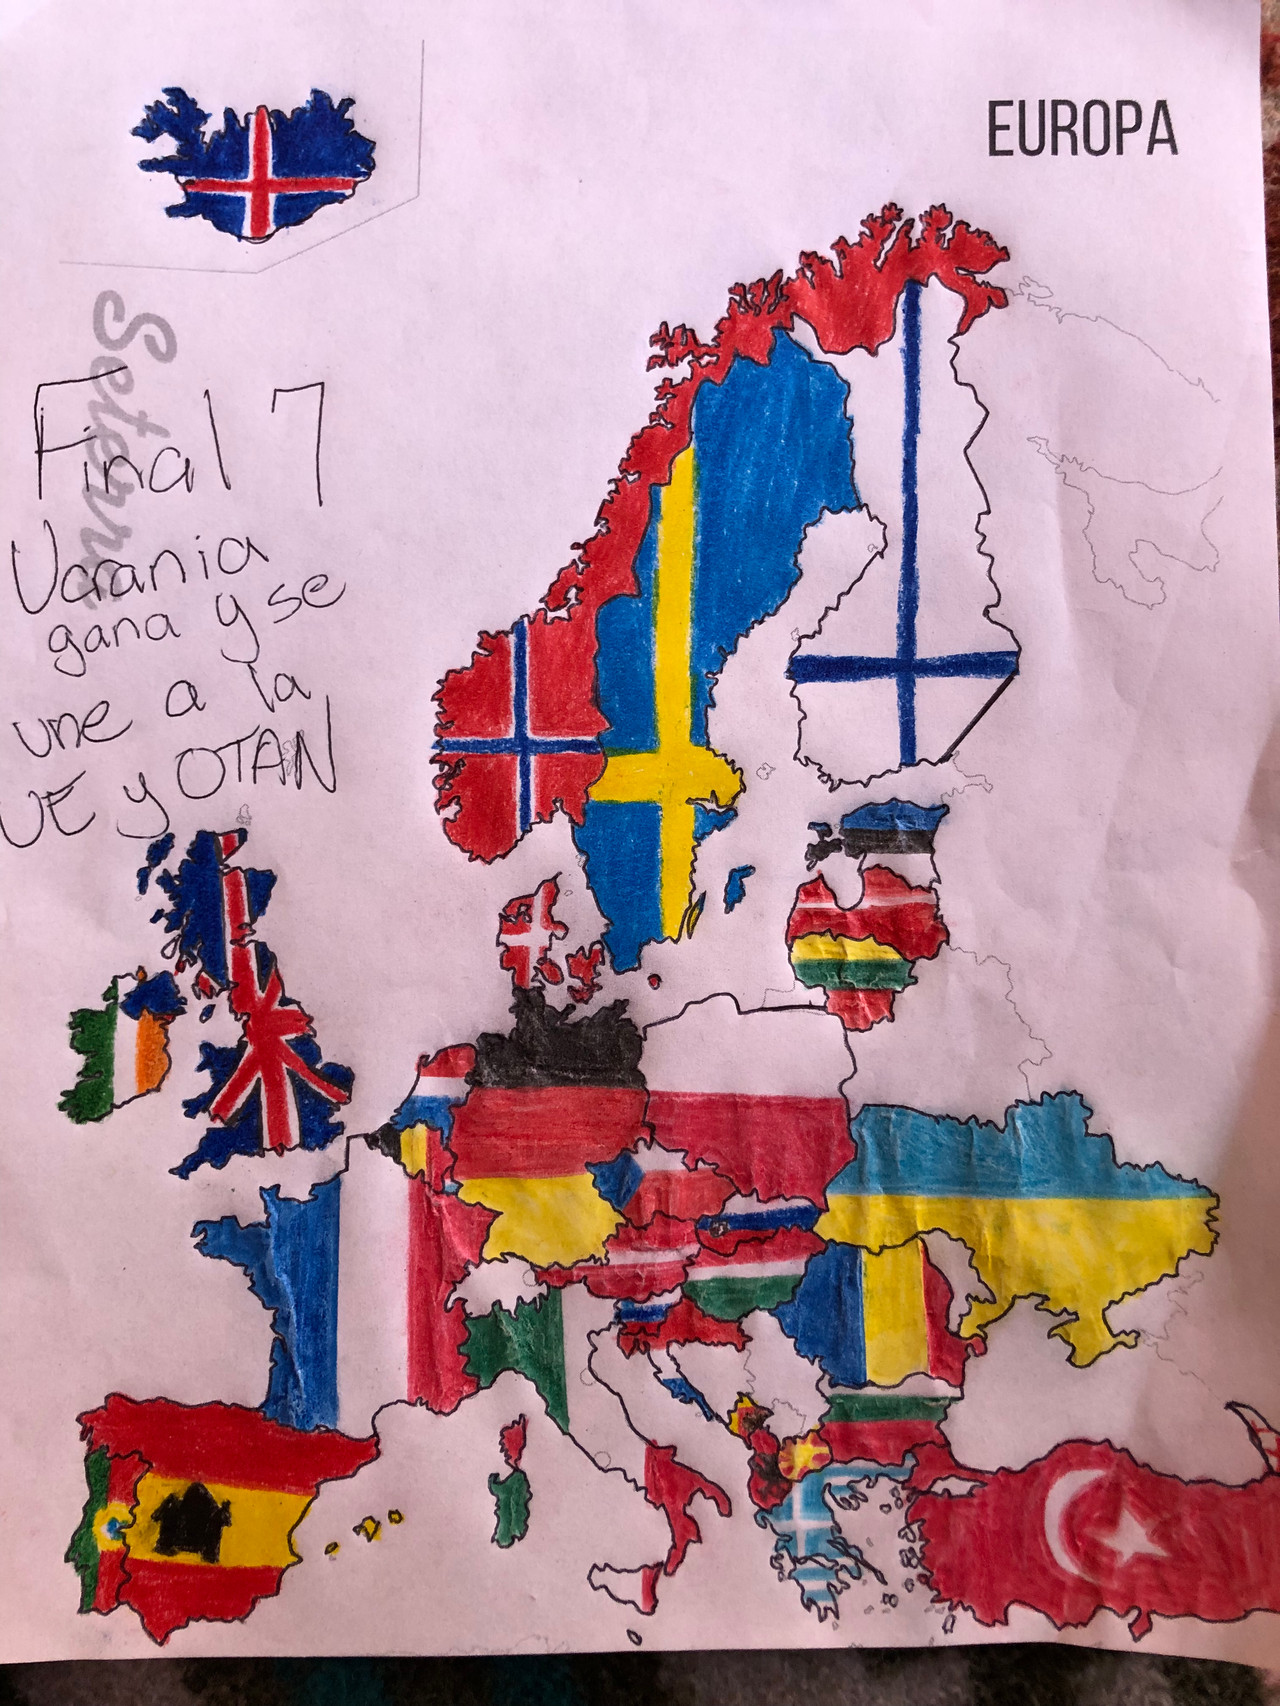 EUROPA
Seterra
Final 7
Ucrania
gana y se
une a la
UE y OTAN